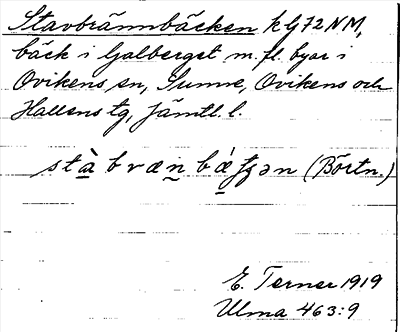 Stavbrännbäcken kG72NM,
bäck i Galberget m. fl. byar i
Ovikens sn, Sunne, Ovikens och
Hallens tg, Jämtl. l.
(Börtn.)
E. Terner 1919
Ulma 463:9